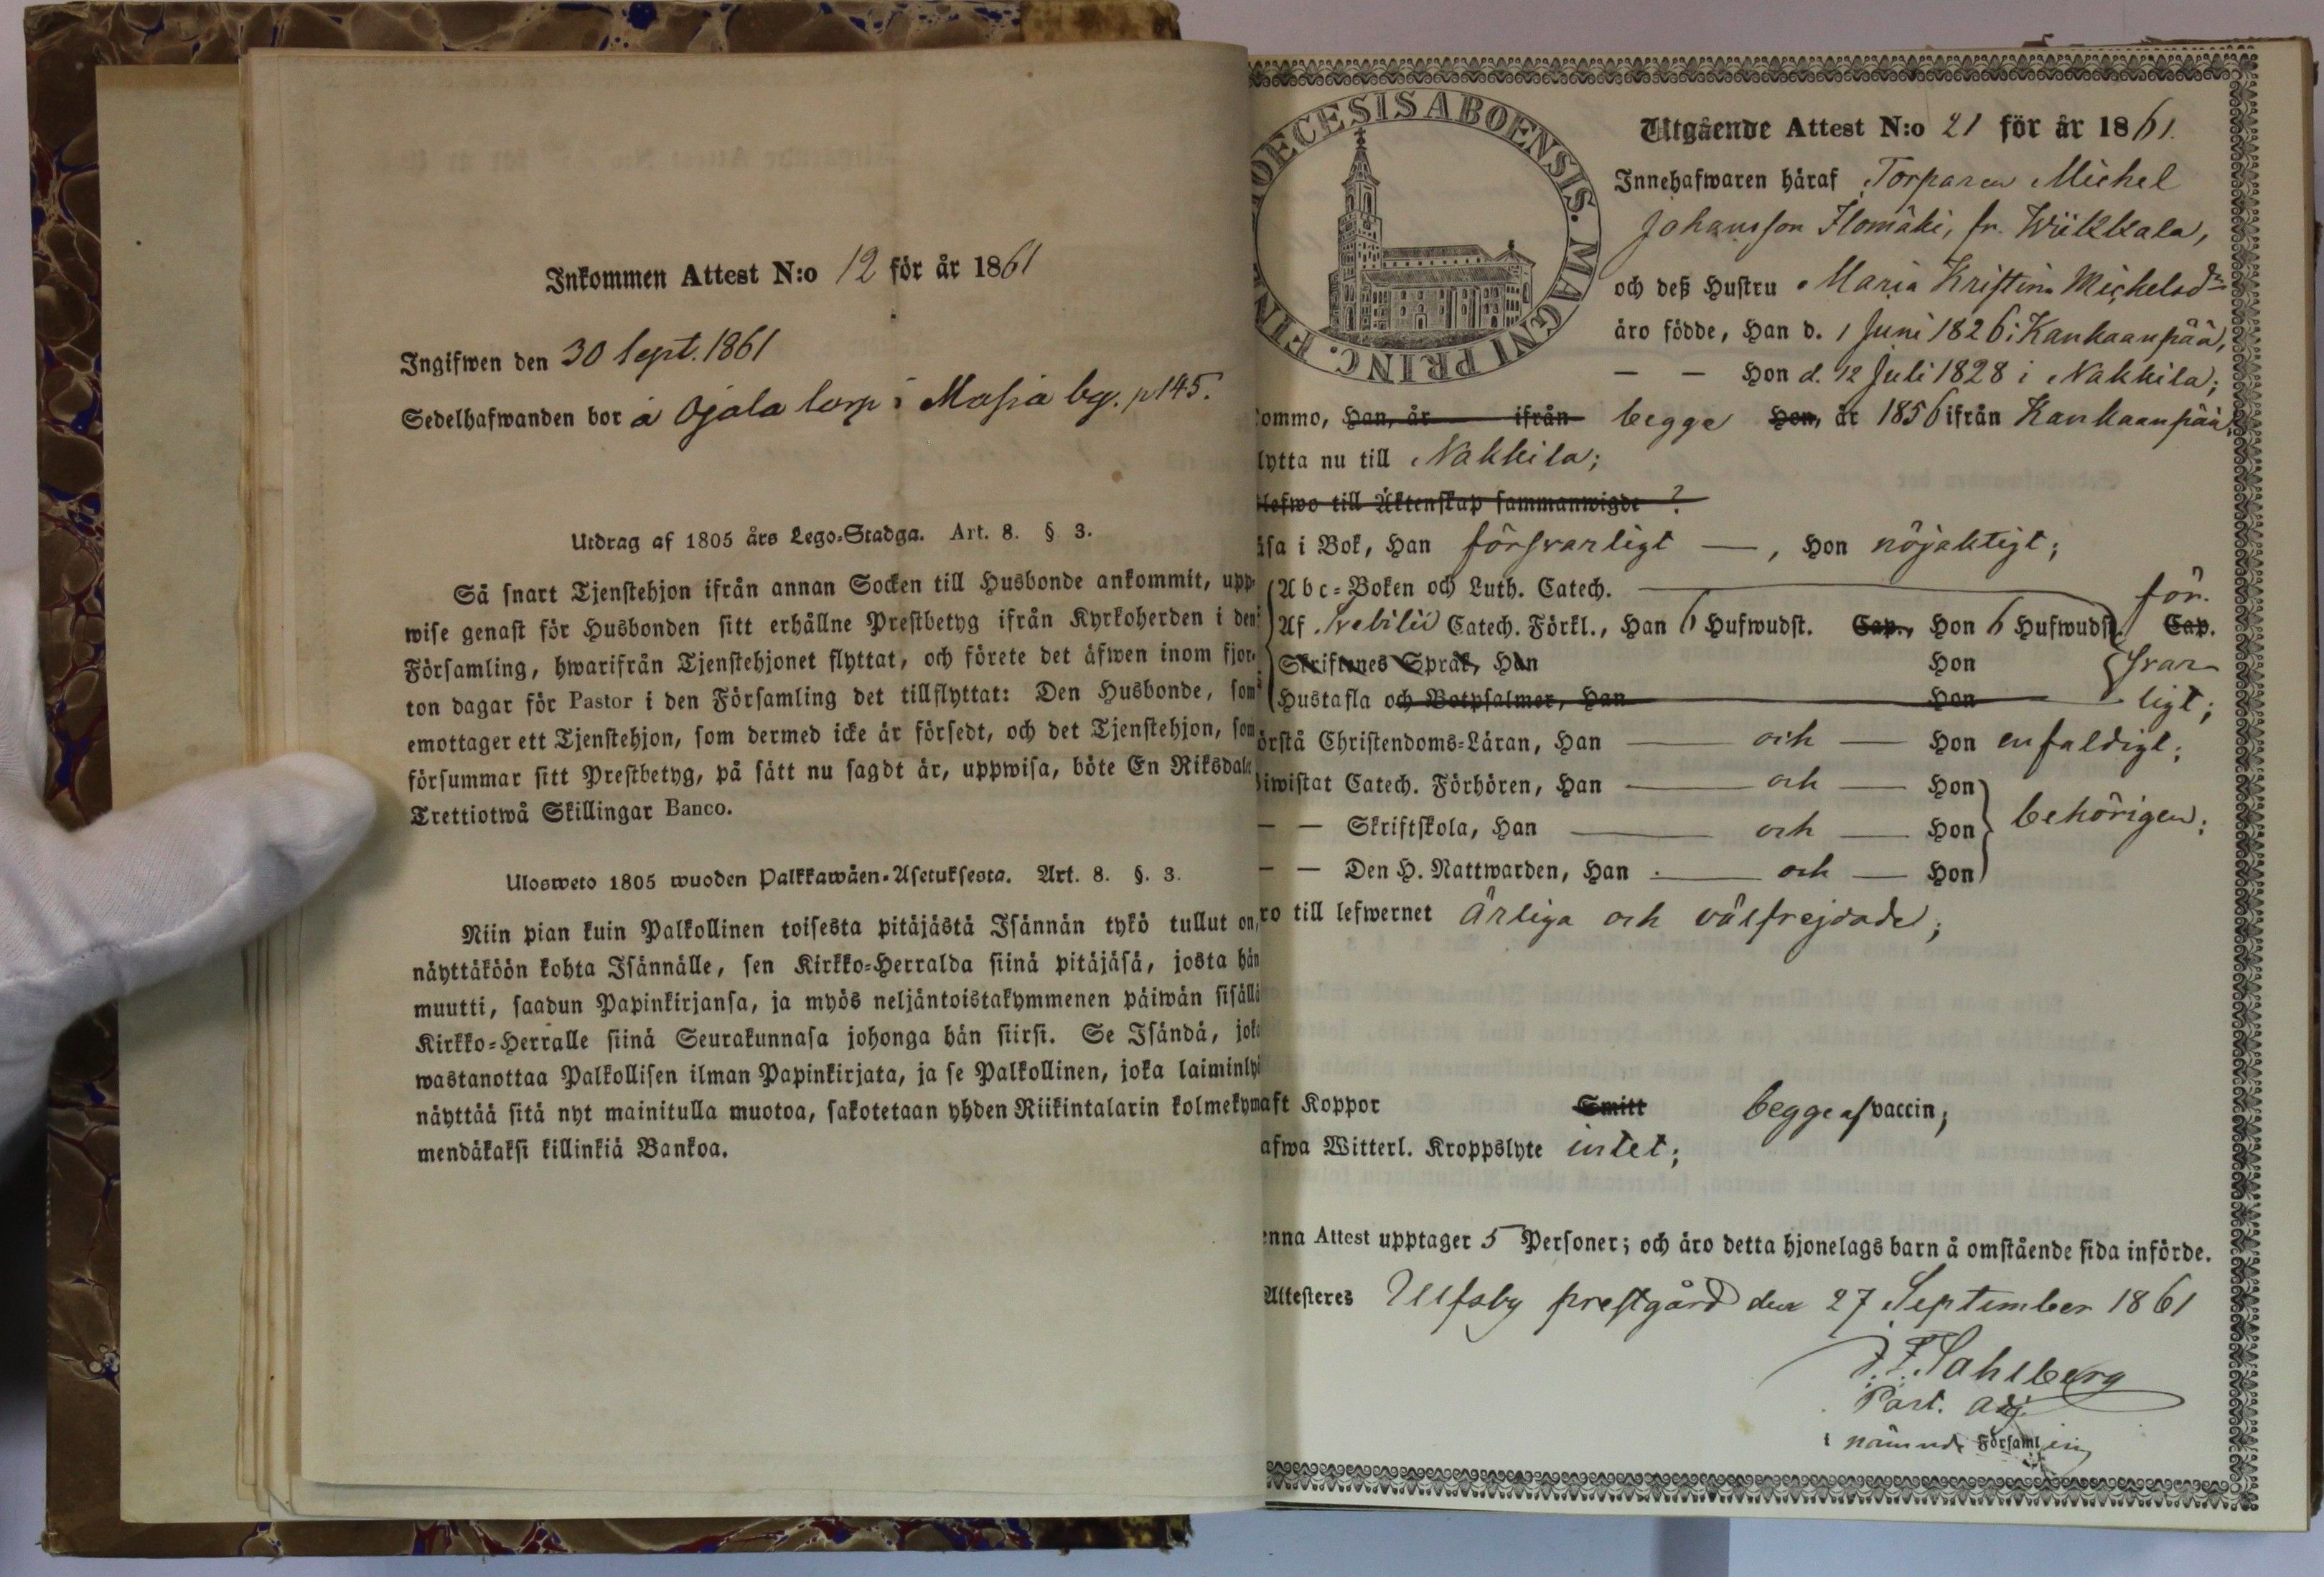 Inkommen Attest N:o 12 för år 1861
Ingifwen den 30 Sept. 1861
Sedelhafwanden bor å Ojala torp i Masia by. p 145.
Utdrag af 1805 års Lego-Stadga. Art. 8. § 3.
Så snart Tjenstehjon ifrån annan Socken till Husbonde ankommit, upp-
wise genast för Husbonden sitt erhållne Prestbetyg ifrån Kyrkoherden i den
Församling, hwarifrån Tjenstehjonet flyttat, och förete det äfwen inom fjor-
ton dagar för Pastor i den Församling det tillflyttat: Den Husbonde, som
emottager ett Tjenstehjon, som dermed icke är försedt, och det Tjenstehjon, som
försummar sitt Prestbetyg, på sätt nu sagdt är, uppwisa, böte En Riksdale
Trettiotwå Skillingar Banco.
Ulosweto 1805 wuoden Palkkawäen-Asetuksesta. Art. 8. §. 3.
Niin pian kuin Palkollinen toisesta pitäjästä Isännän tykö tullut on,
näyttäköön kohta Isännälle, sen Kirkko-Herralda siinä pitäjäsä, josta hän
muutti, saadun Papinkirjansa, ja myös neljäntoistakymmenen päiwän sisällä
Kirkko-Herralle siinä Seurakunnasa johonga hän siirsi. Se Isändä, joka
wastanottaa Palkollisen ilman Papinkirjata, ja se Palkollinen, joka laiminlyö
näyttää sitä nyt mainitulla muotoa, sakotetaan yhden Riikintalarin kolmekym
mendäkaksi killinkiä Bankoa.
OECESIS ABOENSIS. MAGNI PRINC. FIN
Utgående Attest N:o 21 för år 1861.
Innehafwaren häraf Torparen Michel
Johansson Ilomäki, fr. Wiikkala,
och deß Hustru Maria Kristina Michelsdr
äro födde, Han d. 1 Juni 1826 i Kankaanpää,
— — Hon d. 12 Juli 1828 i Nakkila;
ommo, Han, år ifrån begge Hon, år 1856 ifrån Kankaanpää;
lytta nu till Nakkila;
lefwo till Äktenskap sammanwigde ?
äsa i Bok, Han försvarligt —, Hon nöjaktigt;
Abc-Boken och Luth. Catech. för-
Af Svebilii Catech. Förkl., Han 6 Hufwudst. Cap., Hon 6 Hufwudst. Cap.
Skriftenes Språk, Han Hon svar-
Hustafla och Botpsalmer, Han Hon ligt;
örstå Christendoms-Läran, Han — och — Hon enfaldigt;
iwistat Catech. Förhören, Han — och — Hon
— — Skriftskola, Han — och — Hon behörigen;
— — Den H. Nattwarden, Han — och — Hon
ro till lefwernet ärliga och välfrejdade;
aft Koppor Smitt begge af vaccin;
afwa Witterl. Kroppslyte intet;
enna Attest upptager 5 Personer; och äro detta hjonelags barn å omstående sida införde.
Attesteres Ulfsby prestgård den 27 September 1861
F. Sahlberg
Past. Adj.
i nämnde Församling